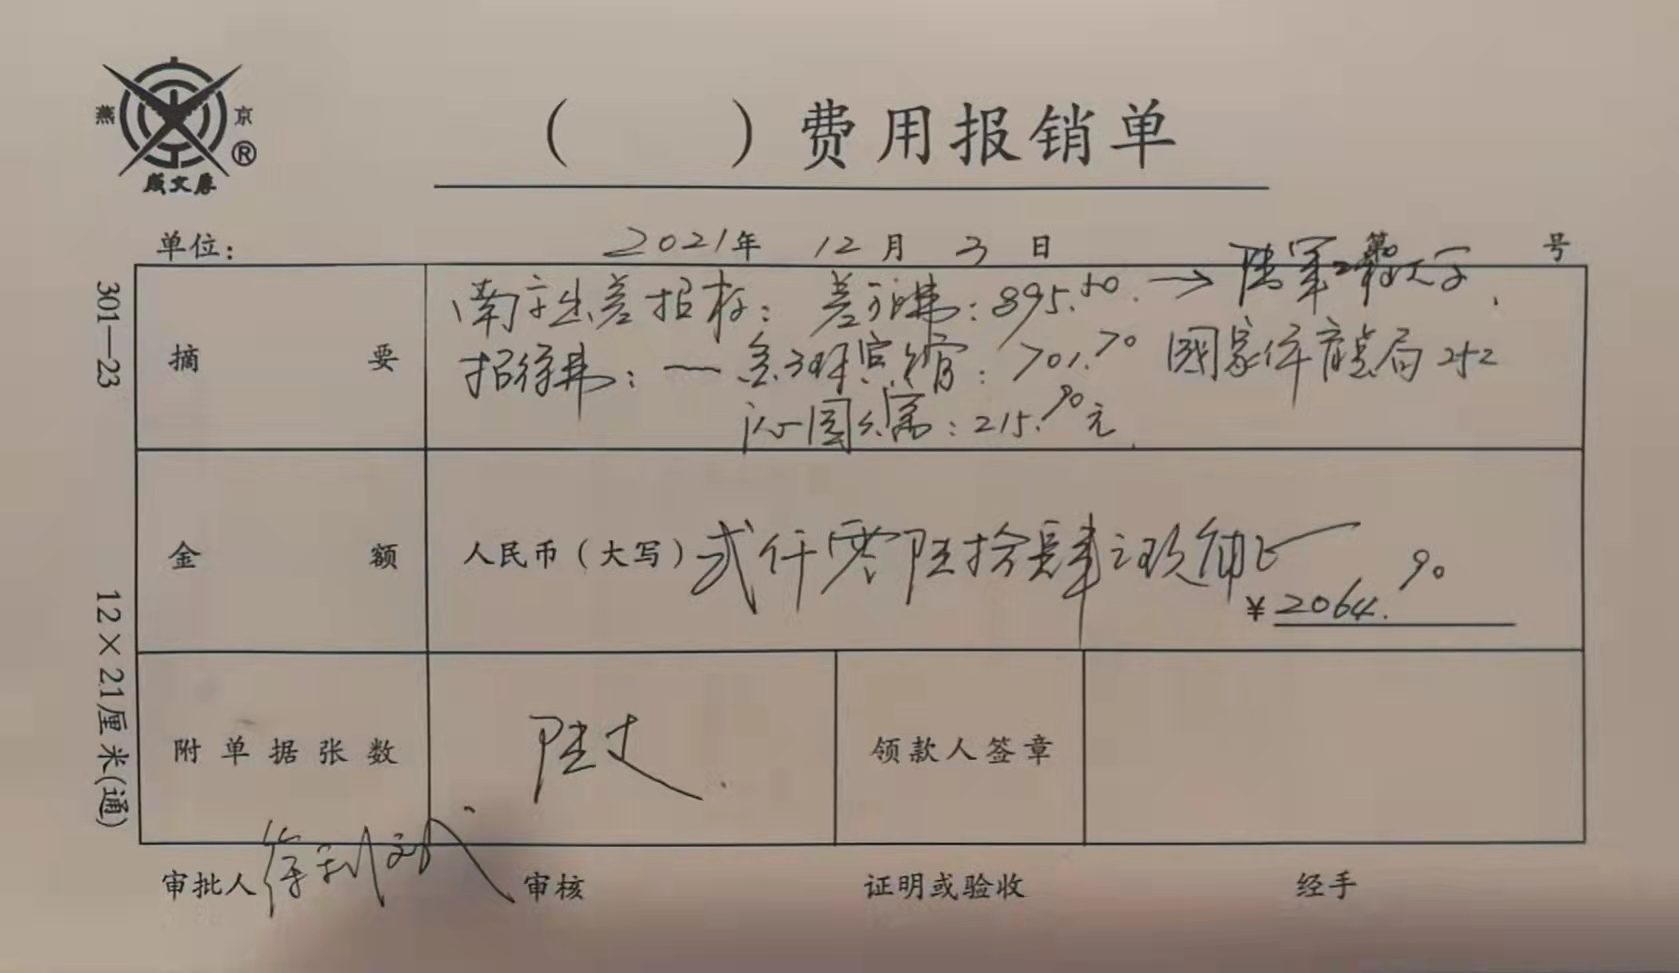 燕 京
®
成文厚
( ) 费用报销单
单位： 2021年 12月 3日 第 号
摘要
南京出差招标：差旅费：895.50. → 陆军工程大学.
招待费：一 金 宾馆：701.70 国家体育总局
沁园 ：215.90元.
金额
人民币（大写）贰仟零陆拾肆元玖角
¥2064.90
附单据张数
陆丈
领款人签章
审批人 徐
审核
证明或验收
经手
301—23
12×21厘米(通)